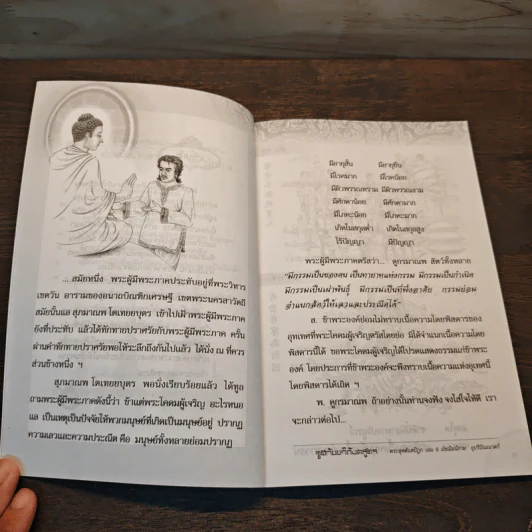 ... สมัยหนึ่ง พระผู้มีพระภาคประทับอยู่ที่พระวิหาร
เชตวัน อารามของอนาถบิณฑิกเศรษฐี เขตพระนครสาวัตถี
สมัยนั้นแล สุภมาณพ โตเทยยบุตร เข้าไปเฝ้าพระผู้มีพระภาค
ยังที่ประทับ แล้วได้ทักทายปราศรัยกับพระผู้มีพระภาค ครั้น
ผ่านคำทักทายปราศรัยพอให้ระลึกถึงกันไปแล้ว ได้นั่ง ณ ที่ควร
ส่วนข้างหนึ่ง ฯ
สุภมาณพ โตเทยยบุตร พอนั่งเรียบร้อยแล้ว ได้ทูล
ถามพระผู้มีพระภาคดังนี้ว่า ข้าแต่พระโคดมผู้เจริญ อะไรหนอ
แล เป็นเหตุเป็นปัจจัยให้พวกมนุษย์ที่เกิดเป็นมนุษย์อยู่ ปรากฏ
ความเลวและความประณีต คือ มนุษย์ทั้งหลายย่อมปรากฏ
มีอายุสั้น มีอายุยืน
มีโรคมาก มีโรคน้อย
มีผิวพรรณทราม มีผิวพรรณงาม
มีศักดาน้อย มีศักดามาก
มีโภคะน้อย มีโภคะมาก
เกิดในสกุลต่ำ เกิดในสกุลสูง
ไร้ปัญญา มีปัญญา
พระผู้มีพระภาคตรัสว่า... ดูกรมาณพ สัตว์ทั้งหลาย
"มีกรรมเป็นของตน เป็นทายาทแห่งกรรม มีกรรมเป็นกำเนิด
มีกรรมเป็นเผ่าพันธุ์ มีกรรมเป็นที่พึ่งอาศัย กรรมย่อม
จำแนกสัตว์ให้เลวและประณีตได้"
ส. ข้าพระองค์ย่อมไม่ทราบเนื้อความโดยพิสดารของ
อุทเทศที่พระโคดมผู้เจริญตรัสโดยย่อ มิได้จำแนกเนื้อความโดย
พิสดารนี้ได้ ขอพระโคดมผู้เจริญได้โปรดแสดงธรรมแก่ข้าพระ
องค์ โดยประการที่ข้าพระองค์จะพึงทราบเนื้อความแห่งอุเทศนี้
โดยพิสดารได้เถิด ฯ
พ. ดูกรมาณพ ถ้าอย่างนั้นท่านจงฟัง จงใส่ใจให้ดี เรา
จะกล่าวต่อไป...
จูฬกัมมวิภังคสูตร พระสุตตันตปิฎก เล่ม ๖ มัชฌิมนิกาย อุปริปัณณาสก์